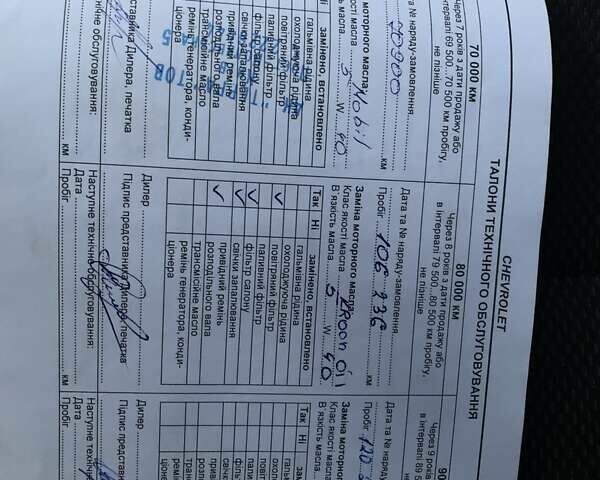 CHEVROLET
ТАЛОНИ ТЕХНІЧНОГО ОБСЛУГОВУВАННЯ
70 000 км
Через 7 років з дати продажу або
в інтервалі 69 500...70 500 км пробігу,
не пізніше
Дата та № наряду-замовлення
км
моторного масла: Mobil
якості масла
масла 5 W 40
замінено, встановлено
гальмівна рідина
охолоджуюча рідина
повітряний фільтр
паливний фільтр
фільтр салону
свічки запалювання
привідний ремінь
розподільного вала
трансмісійне масло
ремінь генератора, конди-
ціонера
ставника Дилера, печатка
не обслуговування:
км
80 000 км
Через 8 років з дати продажу або
в інтервалі 79 500...80 500 км пробігу,
не пізніше
Дата та № наряду-замовлення
Пробіг 106 236 км
Заміна моторного масла:
Клас якості масла Kroon Oil
В'язкість масла 5 W 40
Так Ні замінено, встановлено
гальмівна рідина
охолоджуюча рідина
✓ повітряний фільтр
паливний фільтр
✓ фільтр салону
✓ свічки запалювання
✓ привідний ремінь
розподільного вала
трансмісійне масло
ремінь генератора, конди-
ціонера
Дилер
Підпис представника Дилера, печатка
Наступне технічне обслуговування:
Дата
Пробіг км
90
Через 9 років
в інтервалі 89 5
Дата та № наряду
Пробіг 120
Заміна моторного
Клас якості масла
В'язкість масла
Так Ні
Дилер
Підпис представ
Наступне техніч
Дата
Пробіг